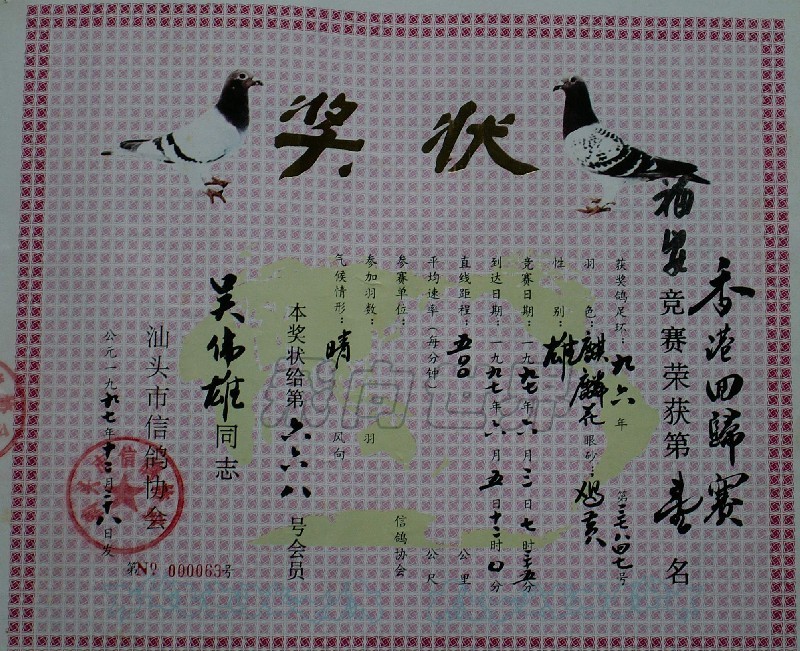 奖状
香港回歸赛
福建竞赛荣获第壹名
获奖鸽足环：九六年第二七八四七号
羽色：麒麟花眼砂：鸡黄
性别：雄
竞赛日期：一九九七年六月二日七时三五分
到达日期：一九九七年六月五日十二时0分
直线距程：五00公里
平均速率（每分钟）公尺
参赛单位：信鸽协会
参加羽数：羽
气候情形：晴风向
本奖状给第六六八号会员
吴伟雄同志
汕头市信鸽协会
公元一九九七年十二月二十八日发
第Nº 000063号